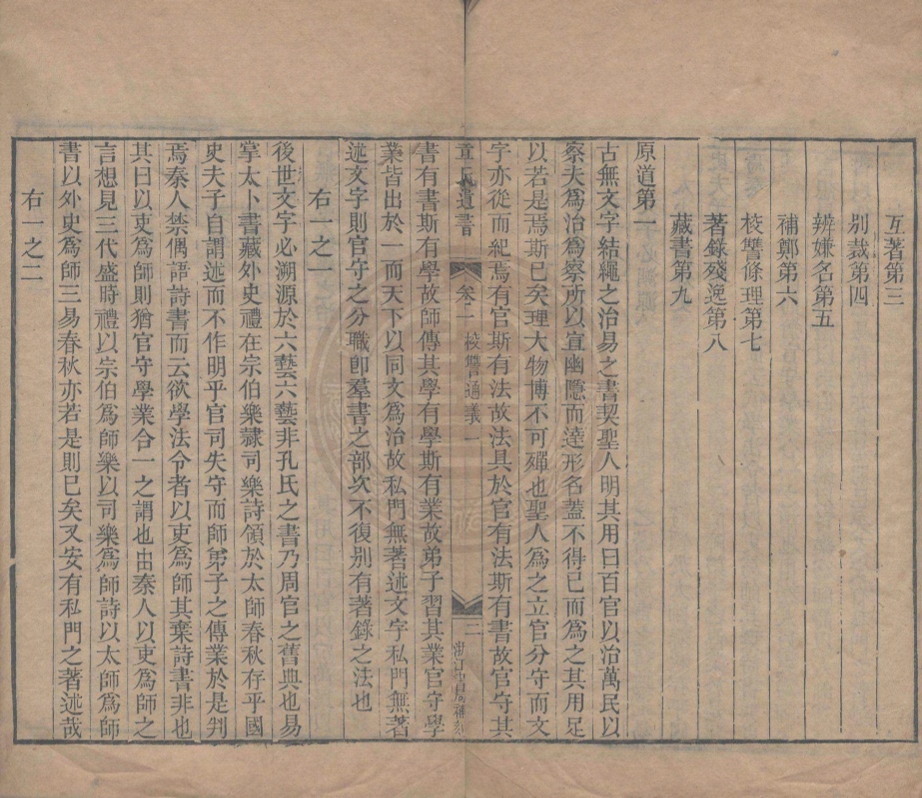 互著第三
別裁第四
辨嫌名第五
補鄭第六
校讐條理第七
著錄殘逸第八
藏書第九
原道第一
古無文字結繩之治易之書契聖人明其用曰百官以治萬民以
察夫爲治爲察所以宣幽隱而達形名蓋不得已而爲之其用足
以若是焉斯已矣理大物博不可殫也聖人爲之立官分守而文
字亦從而紀焉有官斯有法故法具於官有法斯有書故官守其
章氏遺書 卷二 校讐通義一 二
書有書斯有學故師傳其學有學斯有業故弟子習其業官守學
業皆出於一而天下以同文爲治故私門無著述文字私門無著
述文字則官守之分職卽羣書之部次不復別有著錄之法也
右一之一
後世文字必溯源於六藝六藝非孔氏之書乃周官之舊典也易
掌太卜書藏外史禮在宗伯樂隸司樂詩領於太師春秋存乎國
史夫子自謂述而不作明乎官司失守而師弟子之傳業於是判
焉秦人禁偶語詩書而云欲學法令者以吏爲師其棄詩書非也
其曰以吏爲師則猶官守學業合一之謂也由秦人以吏爲師之
言想見三代盛時禮以宗伯爲師樂以司樂爲師詩以太師爲師
書以外史爲師三易春秋亦若是則已矣又安有私門之著述哉
右一之二